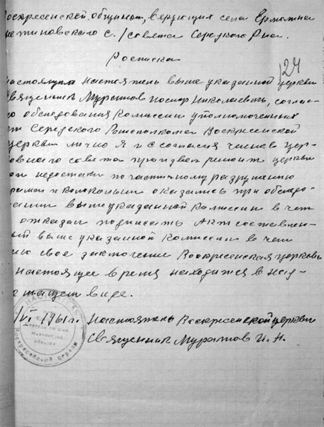 Воскресенской общины, верующих села
с/совета Середского р-на.
124
Расписка
Настоящим настоятель выше указанной церкви
Священник Муратов Иоанн Николаевич, соглас-
но обследования комиссии уполномоченных
от Середского Воскресенской
церкви лично Я и с согласия членов цер-
ковного совета произвел ремонт церкви
недостатки по частичному разрушению
и колокольни оказались при обследо-
вании выше указанной комиссии в чем
отказал подписать Акт составлен-
ный выше указанной комиссии в чем
свое заключение Воскресенская церковь
в настоящее время находится в над-
виде.
VI 1961 г. Настоятель Воскресенской церкви
Священник Муратов И. Н.